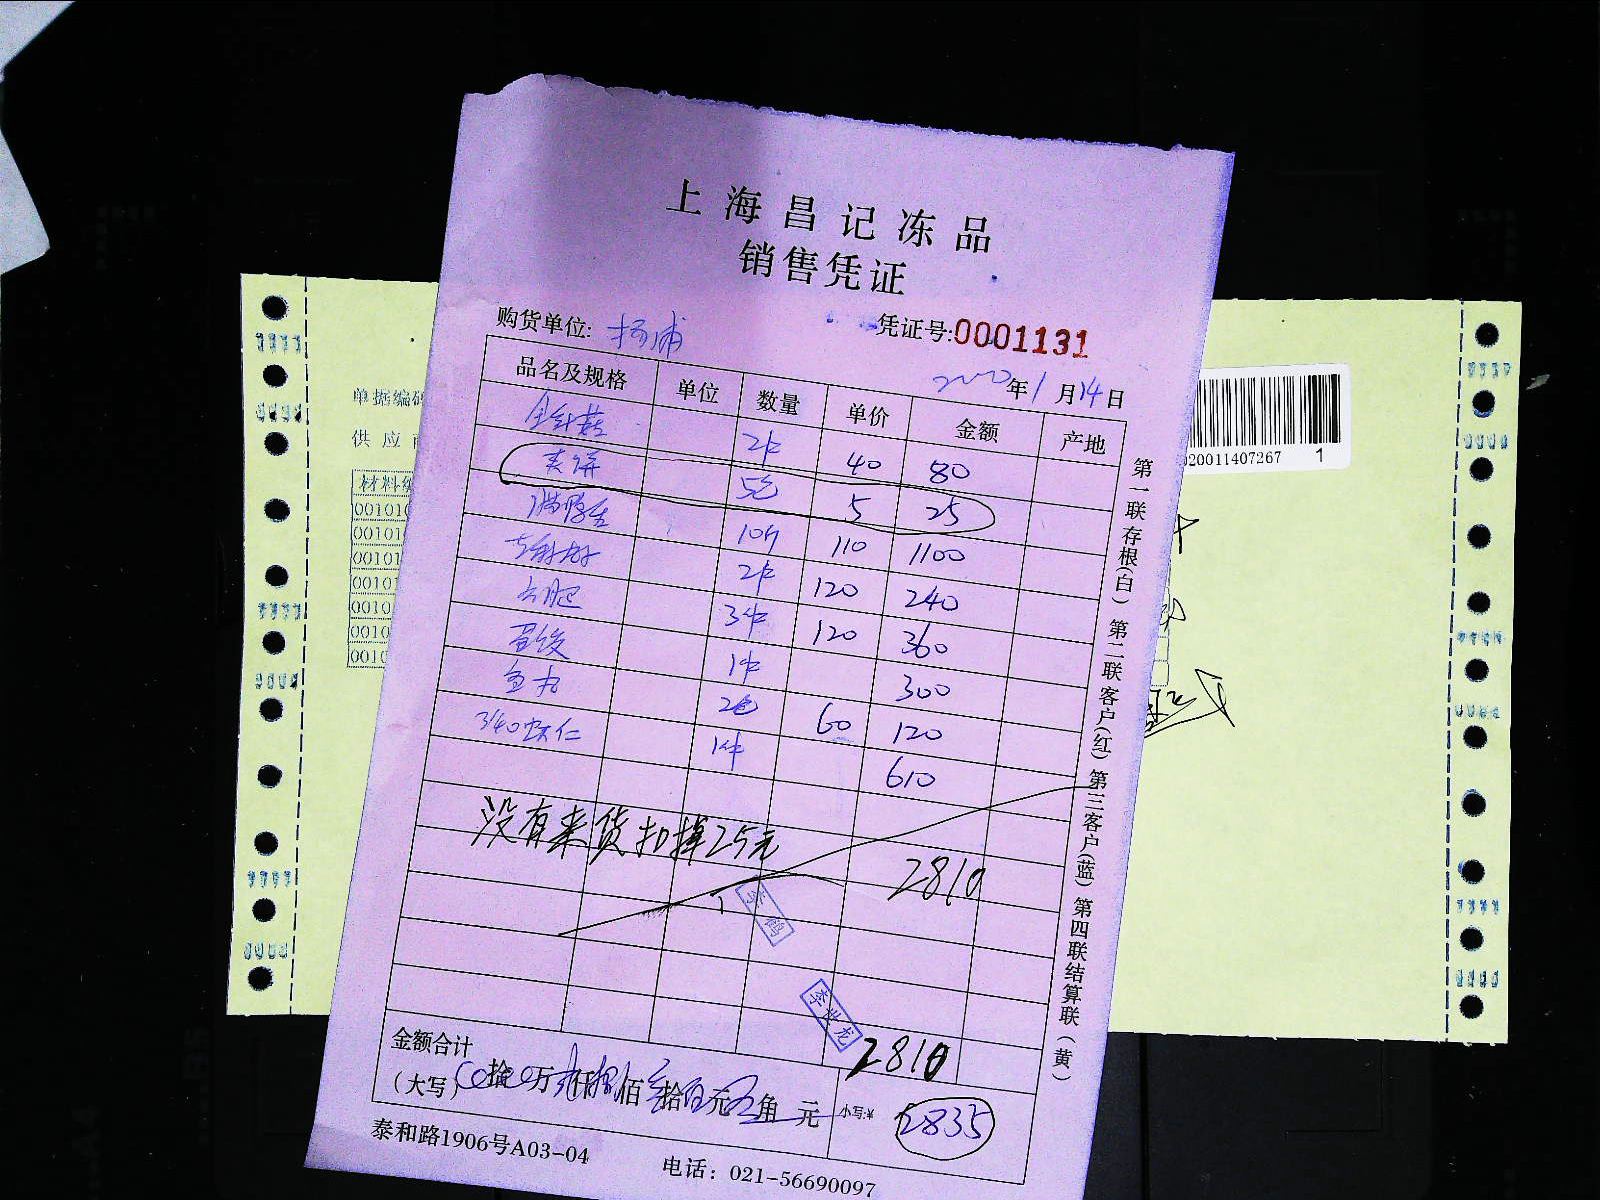 上海昌记冻品
销售凭证
购货单位: 杨浦
凭证号:0001131
2020年1月14日
品名及规格 单位 数量 单价 金额 产地
金针菇 2件 40 80
夹饼 5包 5 25
满鸭舌 10斤 110 1100
2件 120 240
去肥 3件 120 360
1件 300
鱼丸 2包 60 120
3140虾仁 1件 610
没有来货扣掉25元
2810
李鸽
李世龙
2810
金额合计
(大写) 拾 万 仟捌佰叁拾伍元 角 元 小写:¥ 2835
泰和路1906号A03-04
电话: 021-56690097
第一联存根(白) 第二联客户(红) 第三客户(蓝) 第四联结算联(黄)
单据编码
供应商
材料编
00101
00101
00101
00101
00101
00101
00101
020011407267 1